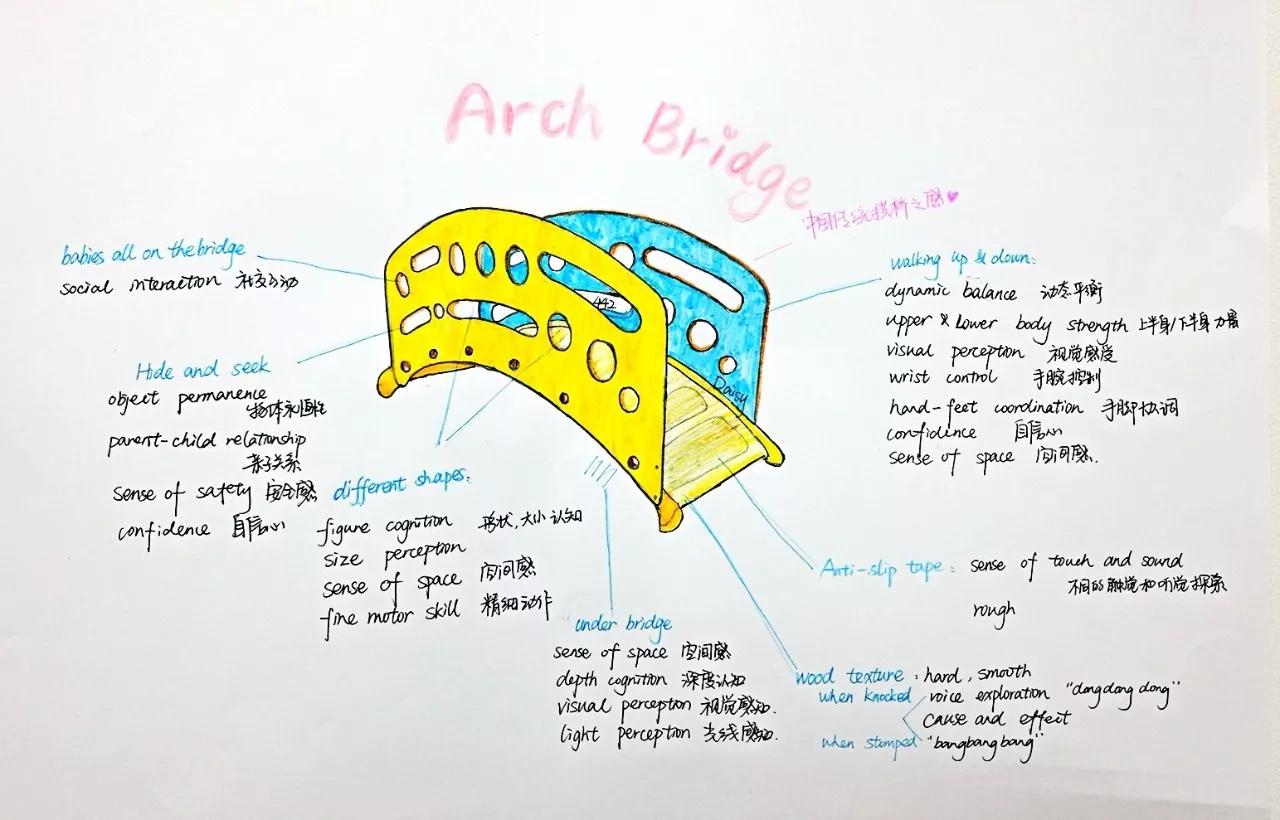 Arch Bridge
中国传统拱桥之感♥
babies all on the bridge
social interaction 社交互动
Hide and seek
object permanence
物体永恒性
parent-child relationship
亲子关系
sense of safety 安全感
confidence 自信心
different shapes:
figure cognition 形状,大小认知
size perception
sense of space 空间感
fine motor skill 精细动作
442
Daisy
under bridge
sense of space 空间感
depth cognition 深度认知
visual perception 视觉感知.
light perception 光线感知.
walking up & down:
dynamic balance 动态平衡
upper & lower body strength 上半身/下半身力量
visual perception 视觉感受
wrist control 手腕控制
hand-feet coordination 手脚协调
confidence 自信心
sense of space 空间感.
Anti-slip tape: sense of touch and sound
不同的触觉和听觉探索
rough
wood texture: hard, smooth
when knocked voice exploration "dongdong dong"
cause and effect
when stomped "bangbangbang"